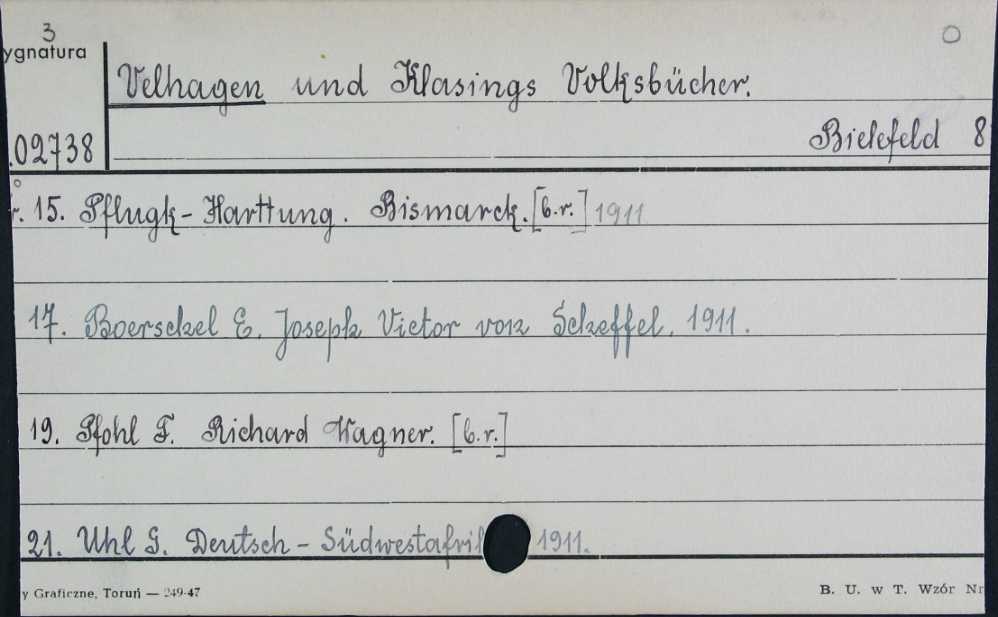 3
ygnatura
Velhagen und Klasings Volksbücher.
.02738
Bielefeld 8
r. 15. Pflugk-Harttung. Bismarck. [b.r.] 1911
17. Boerschel E. Joseph Victor von Scheffel. 1911.
19. Pfohl F. Richard Wagner. [b.r.]
21. Uhl G. Deutsch-Südwestafri 1911.
y Graficzne, Toruń — 249-47
B. U. w T. Wzór Nr